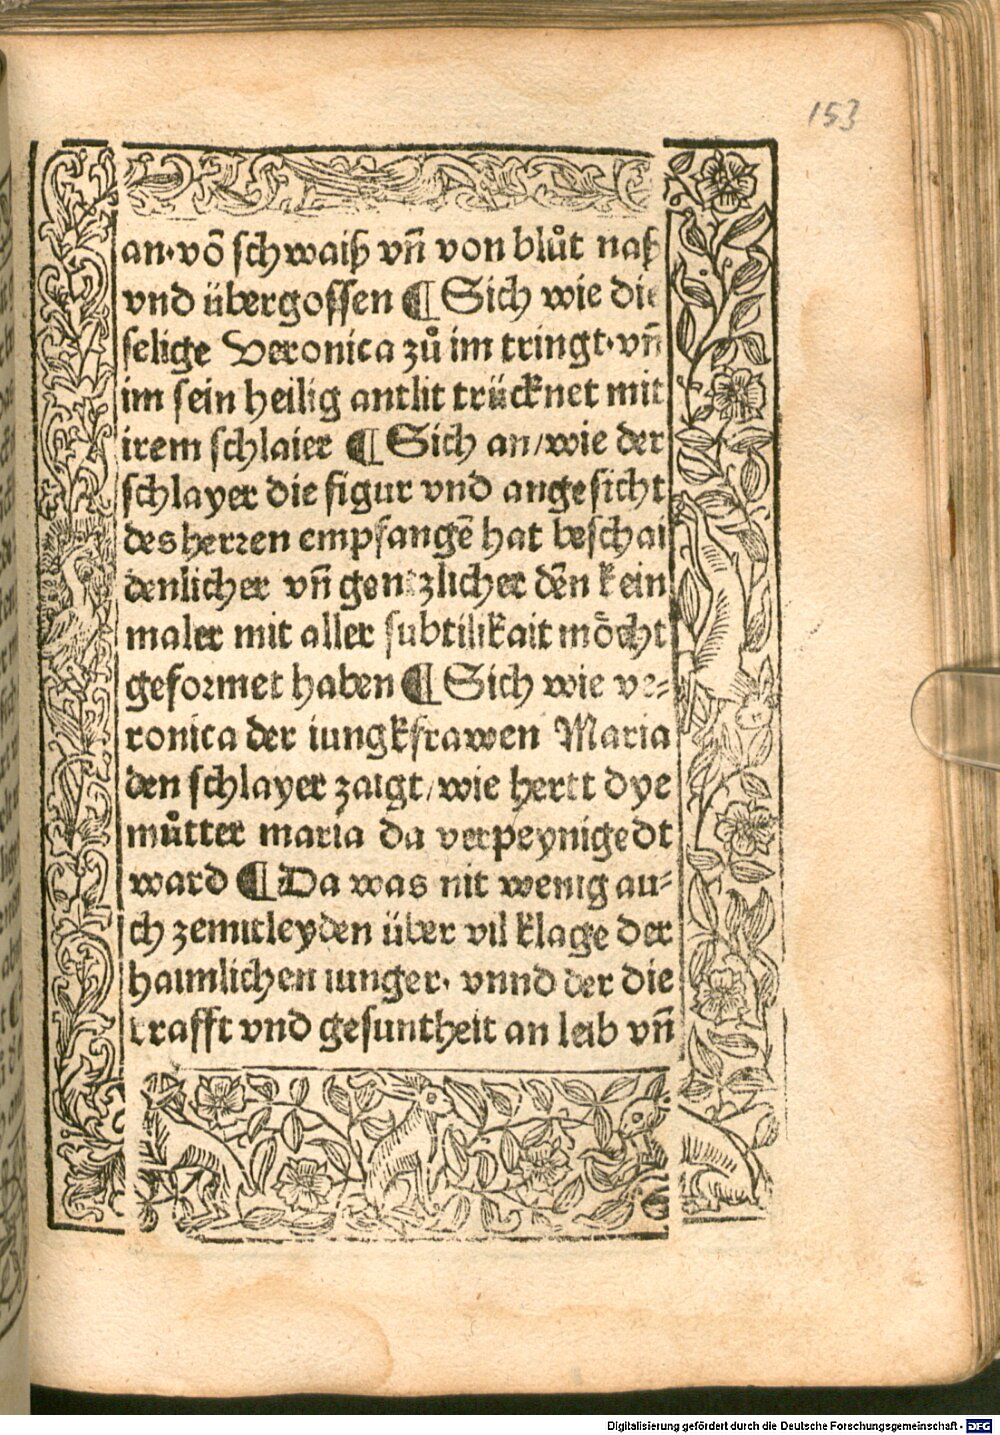 153
an·võ schwaiß vñ von blůt naß
vnd übergossen ¶ Sich wie die
selige Veronica zů im tringt·vñ
im sein heilig antlit trücknet mit
irem schlaier ¶ Sich an/wie der
schlayer die figur vnd angesicht
des herren empfangẽ hat beschai
denlicher vñ gentzlicher dẽn kein
maler mit aller subtilikait mŏcht
geformet haben ¶ Sich wie ve⸗
ronica der iungkfrawen Maria
den schlayer zaigt/wie hertt dye
můtter maria da verpeynigedt
ward ¶ Da was nit wenig au⸗
ch zemitleyden über vil klage der
haimlichen iunger· vnnd der die
krafft vnd gesuntheit an leib vñ
Digitalisierung gefördert durch die Deutsche Forschungsgemeinschaft - DFG